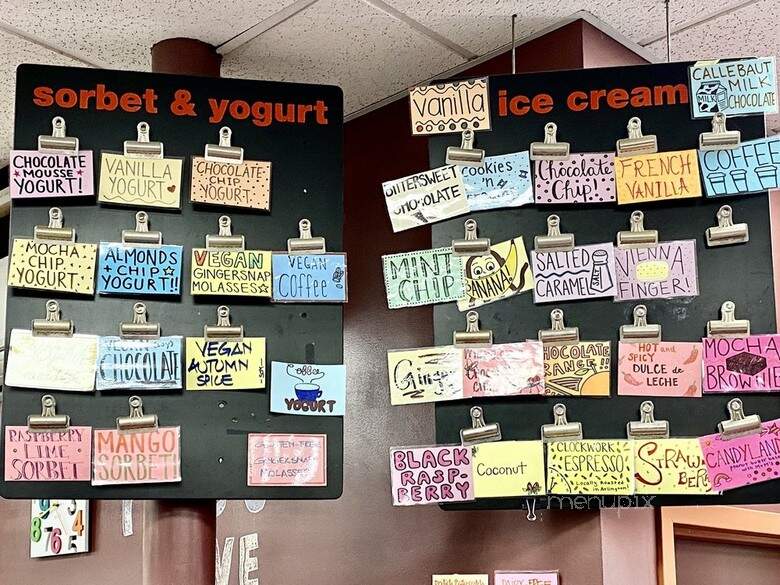 sorbet & yogurt
CHOCOLATE
MOUSSE
YOGURT!
VANILLA
YOGURT
CHOCOLATE
CHIP
YOGURT
MOCHA
CHIP
YOGURT
ALMONDS
+ CHIP
YOGURT!!
VEGAN
GINGERSNAP
MOLASSES
VEGAN
Coffee
VEGAN
CHOCOLATE
VEGAN
AUTUMN
SPICE
Coffee
YOGURT
RASPBERRY
LIME
SORBET
MANGO
SORBET!
GLUTEN-FREE
GINGERSNAP
MOLASSES
vanilla
ice cream
CALLEBAUT
MILK
MILK
CHOCOLATE
BITTERSWEET
CHOCOLATE
cookies
'n
Chocolate
Chip!
FRENCH
VANILLA
COFFEE
MINT
CHIP
BANANA!
SALTED
CARAMEL
SALT
VIENNA
FINGER!
Ginger
CHOCOLATE
ORANGE
HOT and
SPICY
DULCE de
LECHE
MOCHA
BROWNIE
BLACK
RASP
BERRY
Coconut
CLOCKWORK
ESPRESSO
Locally Roasted
in Arlington!
STRAW
BERRY
CANDYLAND
menupix
8
7
6
4
5